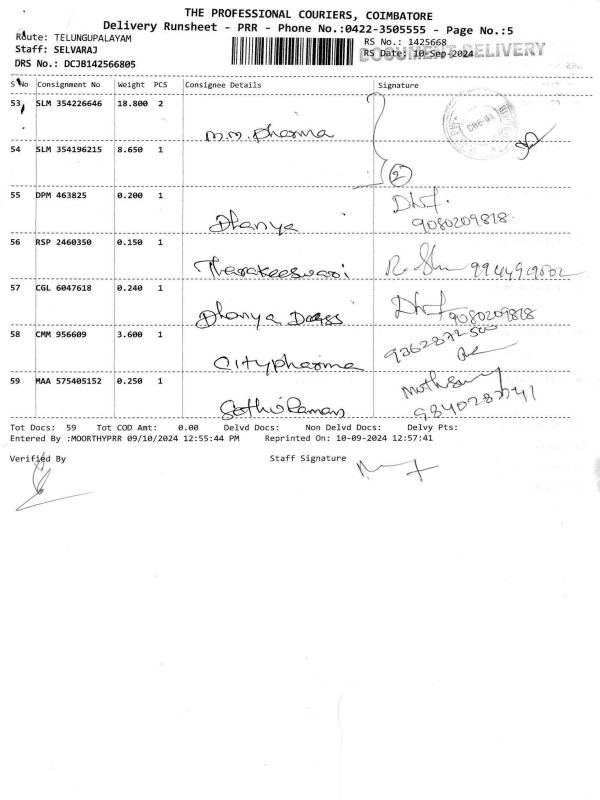 THE PROFESSIONAL COURIERS, COIMBATORE
Delivery Runsheet - PRR - Phone No.:0422-3505555 - Page No.:5
Route: TELUNGUPALAYAM
RS No.: 1425668
DOCUMENT DELIVERY
Staff: SELVARAJ
RS Date: 10-Sep-2024
DRS No.: DCJB142566805
S No Consignment No Weight PCS Consignee Details Signature
53 SLM 354226646 18.800 2
M.M. Pharma
54 SLM 354196215 8.650 1
2
55 DPM 463825 0.200 1
Dhanya 9080209818
56 RSP 2460350 0.150 1
Tharakeeswari
57 CGL 6047618 0.240 1
Dhanya Drugs 9080209818
58 CMM 956609 3.600 1
Citypharma
59 MAA 575405152 0.250 1
Tot Docs: 59 Tot COD Amt: 0.00 Delvd Docs: Non Delvd Docs: Delvy Pts:
Entered By :MOORTHYPRR 09/10/2024 12:55:44 PM Reprinted On: 10-09-2024 12:57:41
Verified By Staff Signature